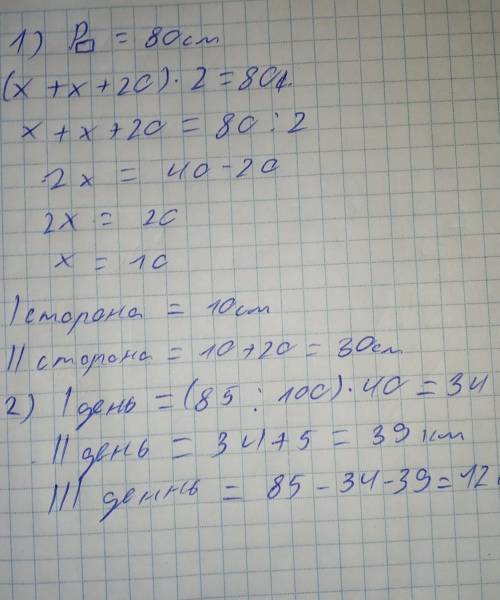 1) P▭ = 80см
(x + x + 20) · 2 = 80
x + x + 20 = 80 : 2
2x = 40 - 20
2x = 20
x = 10
I сторона = 10см
II сторона = 10 + 20 = 30см
2) I день = (85 : 100) · 40 = 34
II день = 34 + 5 = 39 км
III деннь = 85 - 34 - 39 = 12